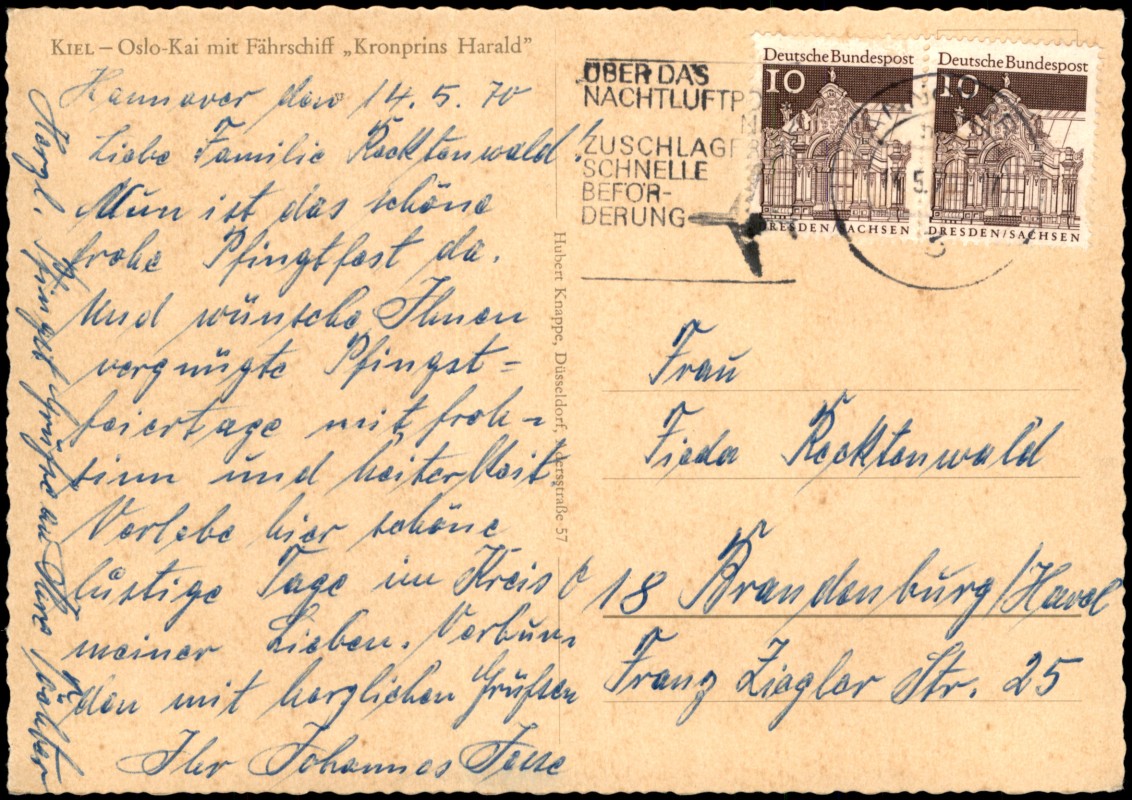 KIEL – Oslo-Kai mit Fährschiff „Kronprins Harald”
Hannover den 14.5.70
Liebe Familie Recktenwald!
Nun ist das schöne
frohe Pfingtfest da.
Und wünsche Ihnen
vergnügte Pfingst=
feiertage mit froh-
sinn und heiterkeit
Verlebe hier schöne
lustige Tage im Kreis
meiner Lieben. Verbun-
den mit herzlichen Grüßen
Ihr Johannes
Herzl. Pfingst Grüße an Ihre Tochter
Hubert Knappe, Düsseldorf, Adersstraße 57
ÜBER DAS
NACHTLUFTPO
ZUSCHLAGF
SCHNELLE
BEFÖR-
DERUNG
Deutsche Bundespost
10
DRESDEN/SACHSEN
Deutsche Bundespost
10
DRESDEN/SACHSEN
Frau
Fieda Recktenwald
18 Brandenburg/Havel
Franz Ziegler Str. 25